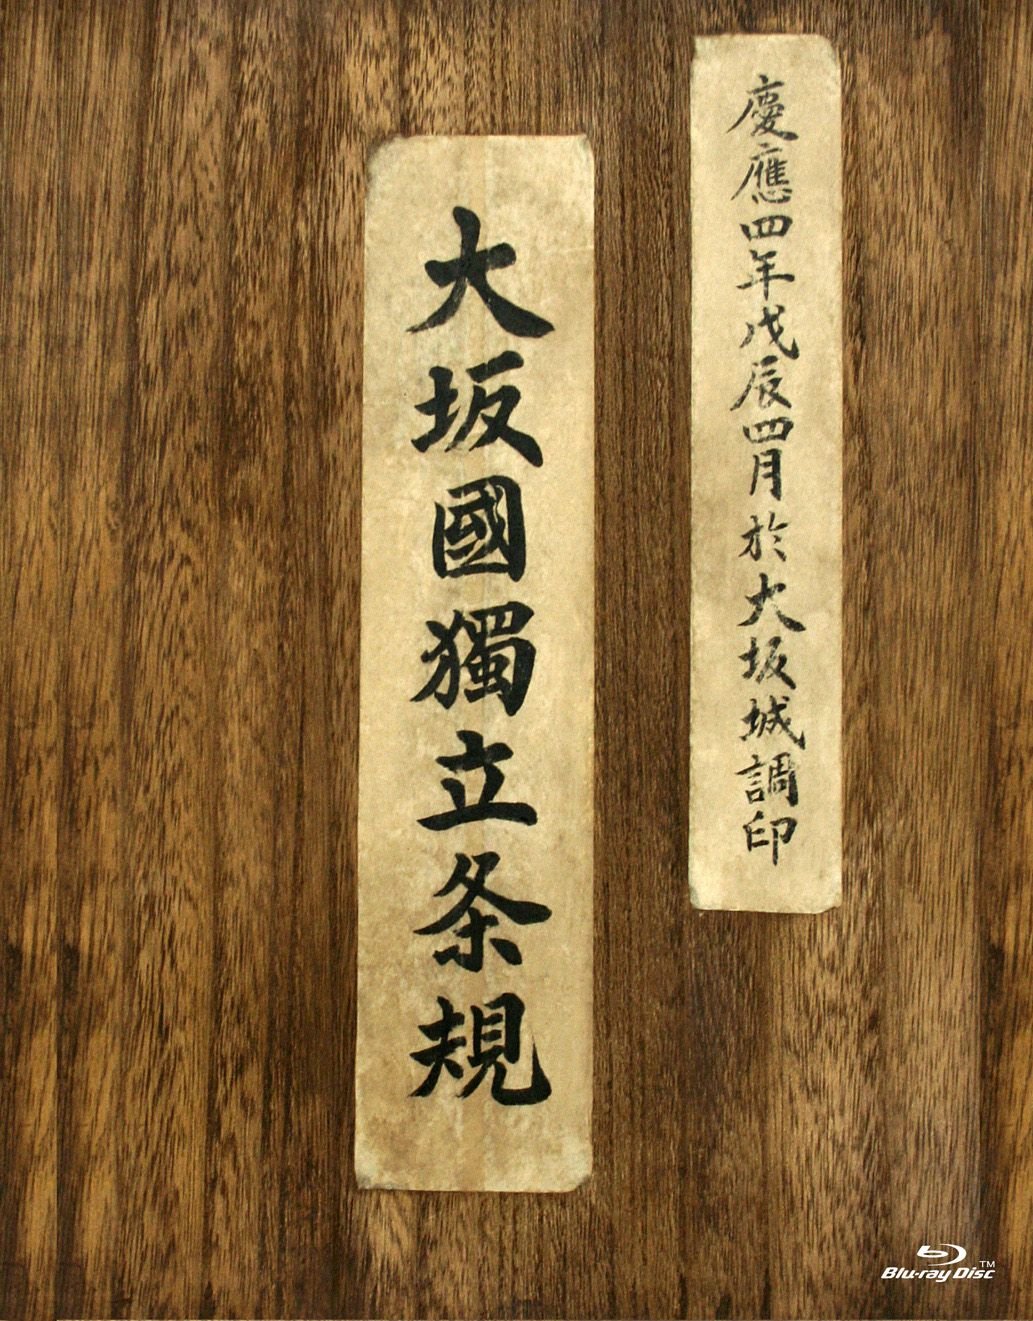 慶應四年戊辰四月於大坂城調印
大坂國獨立条規
Blu-ray Disc™